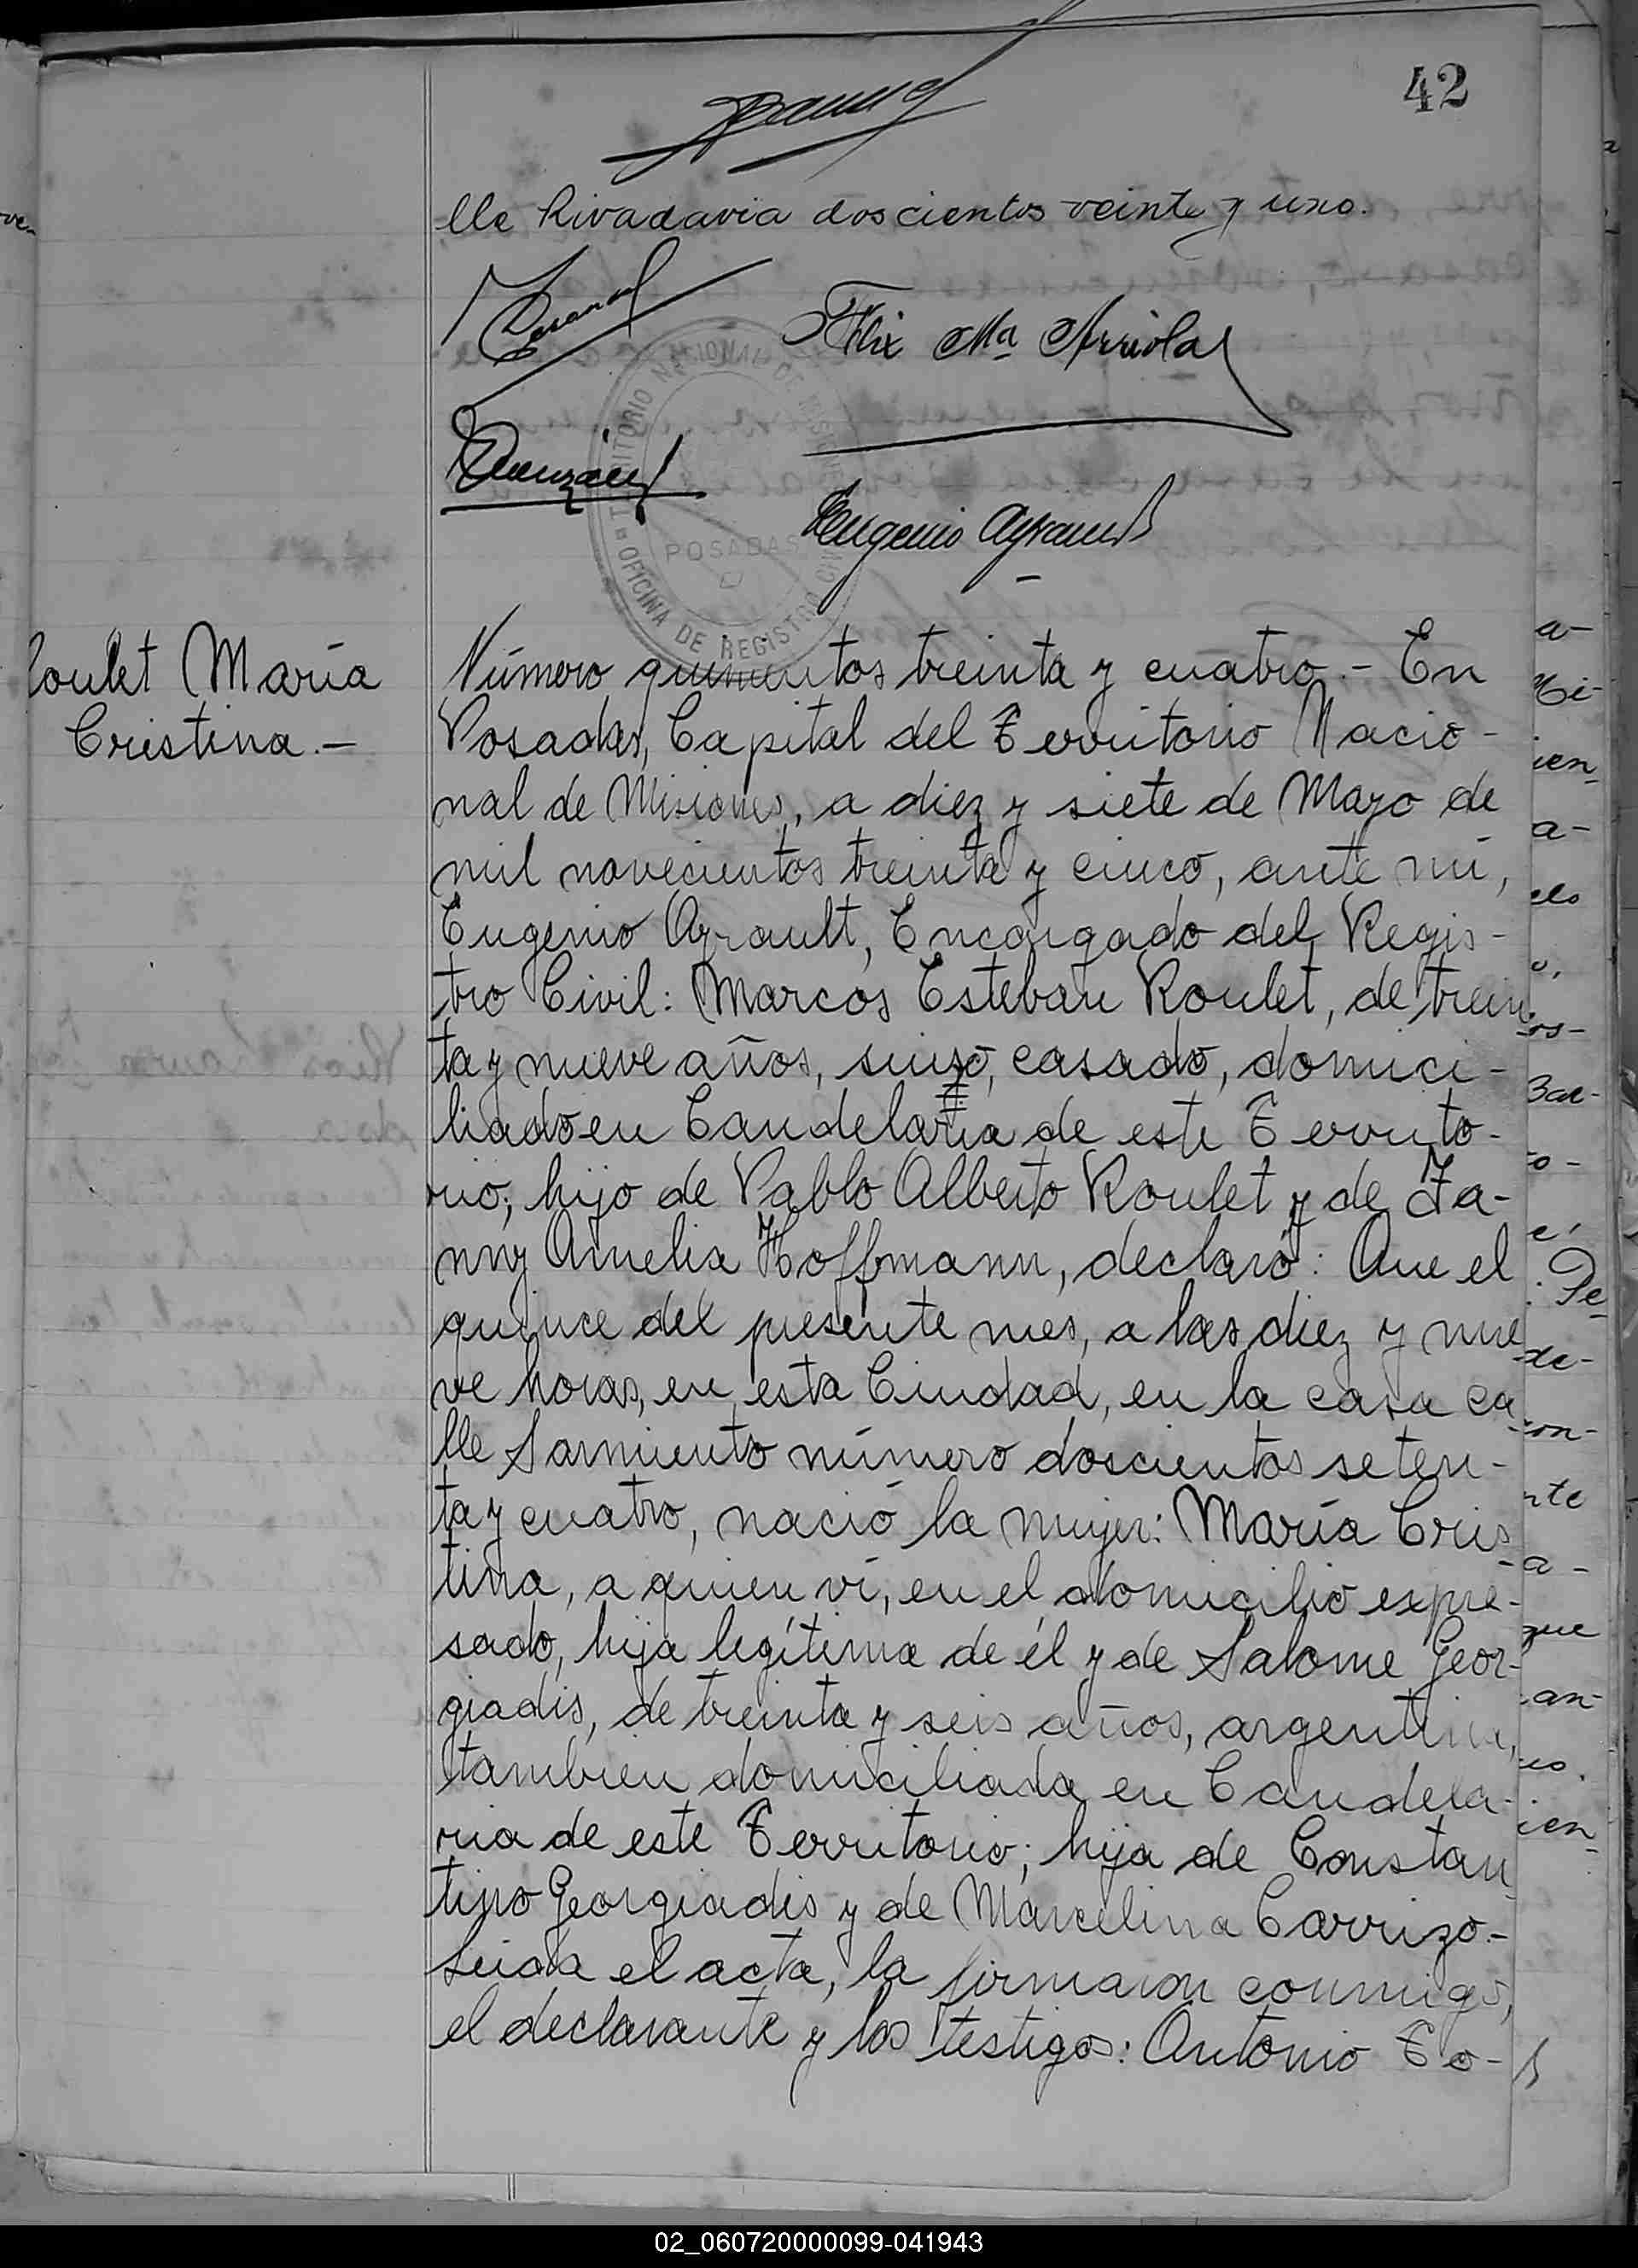 42
lle Rivadavia doscientos veinte y uno.
Felix Ma Arriola
Eugenio Ayrault
TERRITORIO NACIONAL DE MISIONES
POSADAS
OFICINA DE REGISTRO CIVIL
Roulet María
Cristina.-
Número quinientos treinta y cuatro.- En
Posadas, Capital del Territorio Nacio-
nal de Misiones, a diez y siete de Mayo de
mil novecientos treinta y cinco, ante mí,
Eugenio Ayrault, Encargado del Regis-
tro Civil: Marcos Esteban Roulet, de trein
ta y nueve años, suizo, casado, domici-
liado en Candelaria de este Territo-
rio; hijo de Pablo Alberto Roulet y de Fa-
nny Amelia Hoffmann, declaró: Que el
quince del presente mes, a las diez y nue
ve horas, en esta Ciudad, en la casa ca
lle Sarmiento número doscientos seten-
ta y cuatro, nació la mujer: María Cris
tina, a quien ví, en el domicilio expre-
sado, hija legítima de él y de Salome Geor-
giadis, de treinta y seis años, argentina,
tambien domiciliada en Candela-
ria de este Territorio; hija de Constan
tino Georgiadis y de Marcelina Carrizo.-
Leida el acta, la firmaron conmigo,
el declarante y los testigos: Antonio To-
02_060720000099-041943